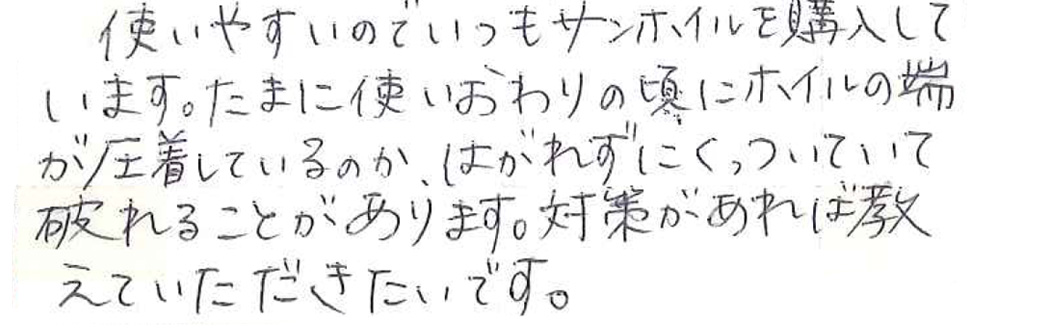 使いやすいのでいつもサンホイルを購入して
います。たまに使いおわりの頃にホイルの端
が圧着しているのか、はがれずにくっついていて
破れることがあります。対策があれば教
えていただきたいです。